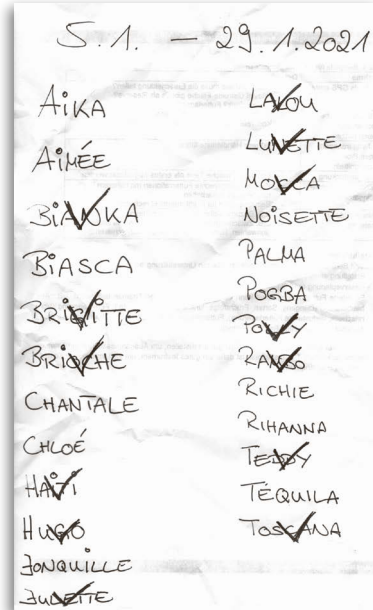 5.1. — 29.1.2021
AiKA
AiMÉE
BiANKA
BiASCA
BRIGITTE
BRIOCHE
CHANTALE
CHLOÉ
HAÏTI
HUGO
JONQUILLE
JULIETTE
LALOU
LUNETTE
MOSCA
NOiSETTE
PALMA
POGBA
RAMBO
RICHIE
RIHANNA
TEDDY
TÉQUILA
TOSCANA